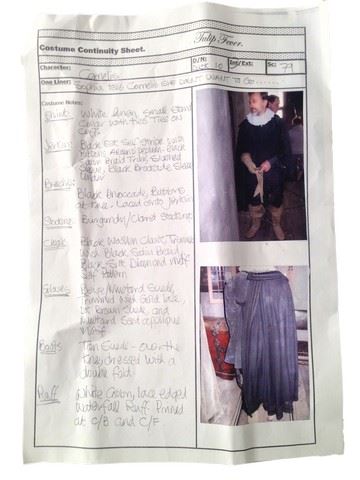 Costume Continuity Sheet.
Tulip Fever.
Character: Cornelis
D/N: Int/Ext: Sc: 79
One Liner: Sophia tells Cornelis she doesn't want to go......
Costume Notes:
Shirt: White linen, small stand
collar with ties. Ties on
cuffs.
Jerkin: Black
Buttons Around peplum. Black
Satin Braid Trim, Slashed
Sleeve, Black Brocade Sleeve
under
Breeches:
Black Brocade, Buttons
at knee. Laced onto Jerkin
Stockings Burgundy/Claret Stockings
Cloak Black Woollen Cloak, Trimmed
with Black Satin Braid,
Black Silk Diamond
pattern
Gloves Beige/Mustard Suede,
trimmed with Gold lace,
Lt Brown Suede, and
Mustard Satin applique
Boots Tan Suede - over the
knee, dressed with a
double fold
Ruff White Cotton, lace edged
Waterfall Ruff. Pinned
at C/B and C/F